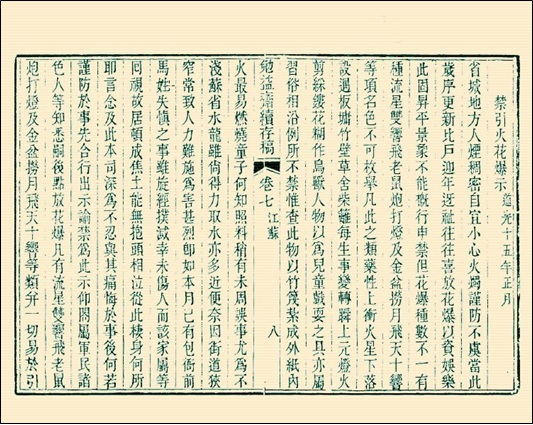 禁引火花爆示 道光十五年正月
省城地方人煙稠密自宜小心火燭謹防不虞當此
歲序更新比戶迎年迓祉往往喜放花爆以資娛樂
此固昇平景象不能概行申禁但花爆種數不一有
種流星雙響飛老鼠炮打燈及金盆撈月飛天十響
等項名色不可枚舉凡此之類藥性上衝火星下落
設遇板墉竹壁草舍柴籬每生事變轉瞬上元燈火
剪綵鏤花糊作鳥獸人物以爲兒童戲耍之具亦屬
習俗相沿例所不禁惟查此物以竹篾紮成外紙內
勉益齋續存稿 卷七 江蘇 八
火最易燃燒童子何知照料稍有未周誤事尤爲不
淺蘇省水龍雖尙得力取水亦多近便奈因街道狹
窄常致人力難施爲害甚烈卽如本月已有包衙前
馬姓失愼之事雖旋經撲滅幸未傷人而該家屬等
囘視故居頓成焦土能無抱頭相泣從此棲身何所
耶言念及此本司深爲不忍與其痛悔於事後何若
謹防於事先合行出示諭禁爲此示仰閤屬軍民諸
色人等知悉嗣後點放花爆凡有流星雙響飛老鼠
炮打燈及金盆撈月飛天十響等類幷一切易於引